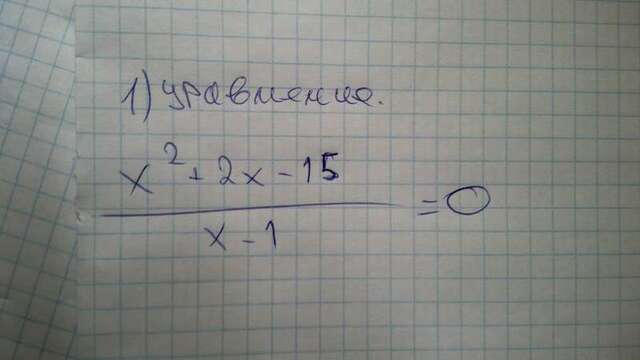 1) уравнение.
x² + 2x - 15
x - 1
= 0